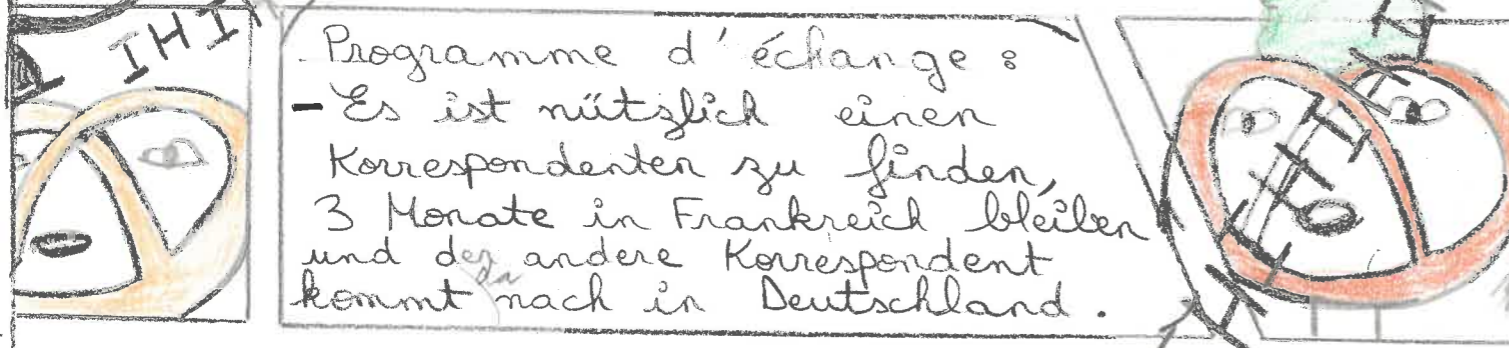 IHI
Programme d'échange :
- Es ist nützlich einen
Korrespondenten zu finden,
3 Monate in Frankreich bleiben
und der andere Korrespondent
kommt nach in Deutschland.